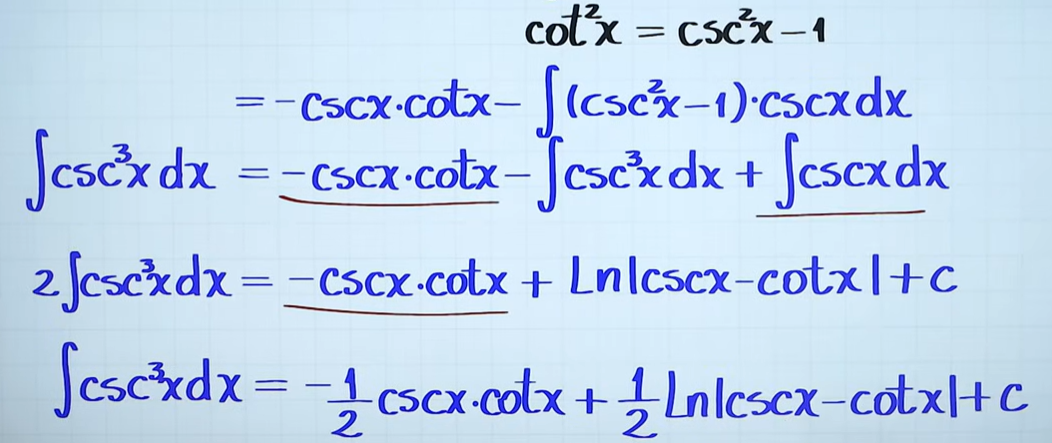 cot²x = csc²x - 1
= -cscx·cotx - ∫(csc²x - 1)·cscx dx
∫csc³x dx = -cscx·cotx - ∫csc³x dx + ∫cscx dx
2∫csc³x dx = -cscx·cotx + Ln|cscx - cotx| + c
∫csc³x dx = -1/2 cscx·cotx + 1/2 Ln|cscx - cotx| + c